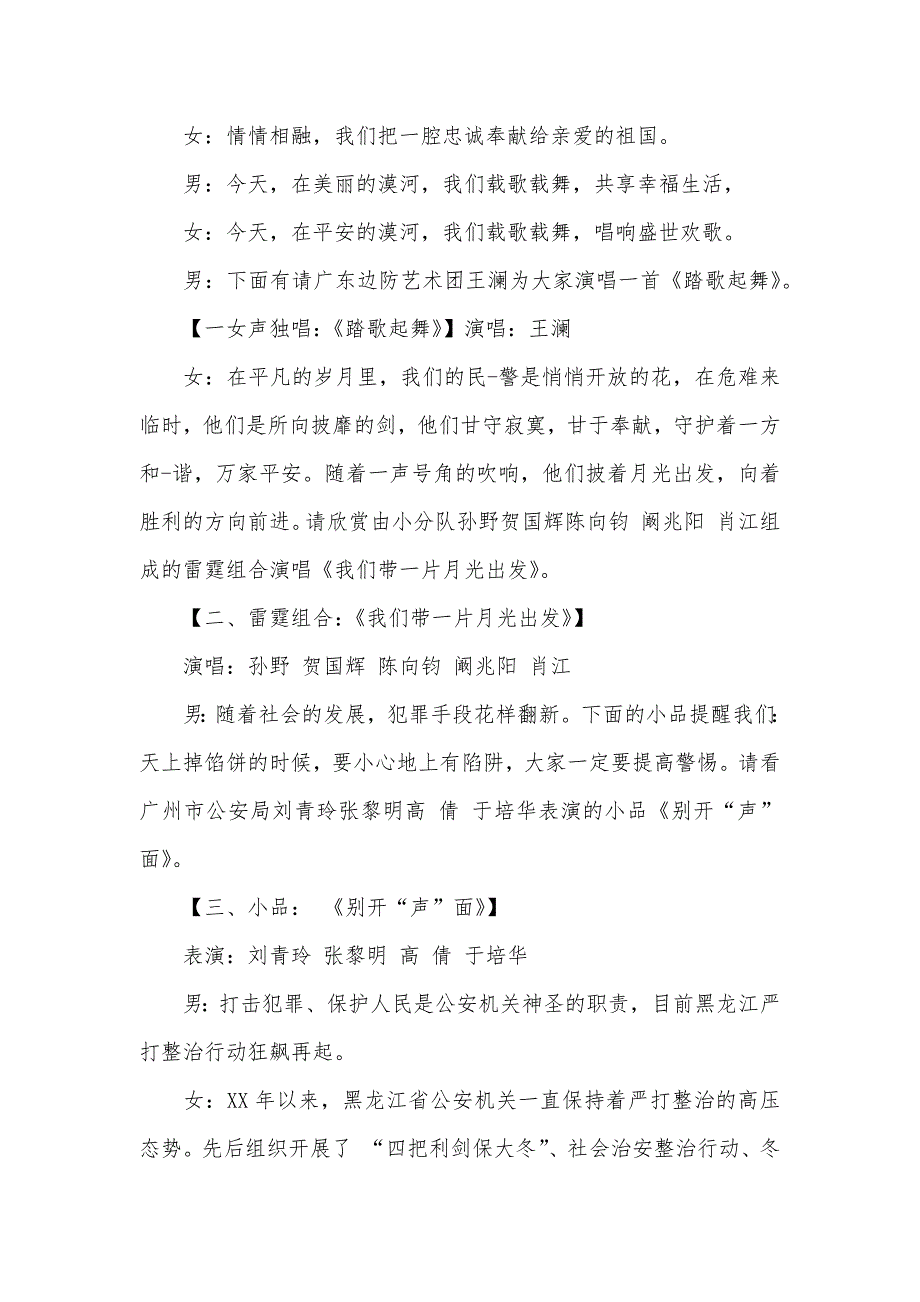 女：情情相融，我们把一腔忠诚奉献给亲爱的祖国。
男：今天，在美丽的漠河，我们载歌载舞，共享幸福生活，
女：今天，在平安的漠河，我们载歌载舞，唱响盛世欢歌。
男：下面有请广东边防艺术团王澜为大家演唱一首《踏歌起舞》。
【一女声独唱：《踏歌起舞》】演唱：王澜
女：在平凡的岁月里，我们的民-警是悄悄开放的花，在危难来
临时，他们是所向披靡的剑，他们甘守寂寞，甘于奉献，守护着一方
和-谐，万家平安。随着一声号角的吹响，他们披着月光出发，向着
胜利的方向前进。请欣赏由小分队孙野贺国辉陈向钧 阚兆阳 肖江组
成的雷霆组合演唱《我们带一片月光出发》。
【二、雷霆组合：《我们带一片月光出发》】
演唱：孙野 贺国辉 陈向钧 阚兆阳 肖江
男：随着社会的发展，犯罪手段花样翻新。下面的小品提醒我们：
天上掉馅饼的时候，要小心地上有陷阱，大家一定要提高警惕。请看
广州市公安局刘青玲张黎明高 倩 于培华表演的小品《别开“声”
面》。
【三、小品： 《别开“声”面》】
表演：刘青玲 张黎明 高 倩 于培华
男：打击犯罪、保护人民是公安机关神圣的职责，目前黑龙江严
打整治行动狂飙再起。
女：XX 年以来，黑龙江省公安机关一直保持着严打整治的高压
态势。先后组织开展了 “四把利剑保大冬”、社会治安整治行动、冬